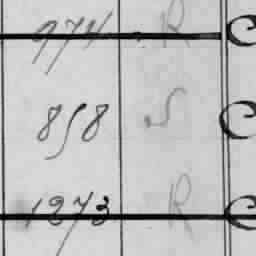 974 R C
858 S C
1273 R C